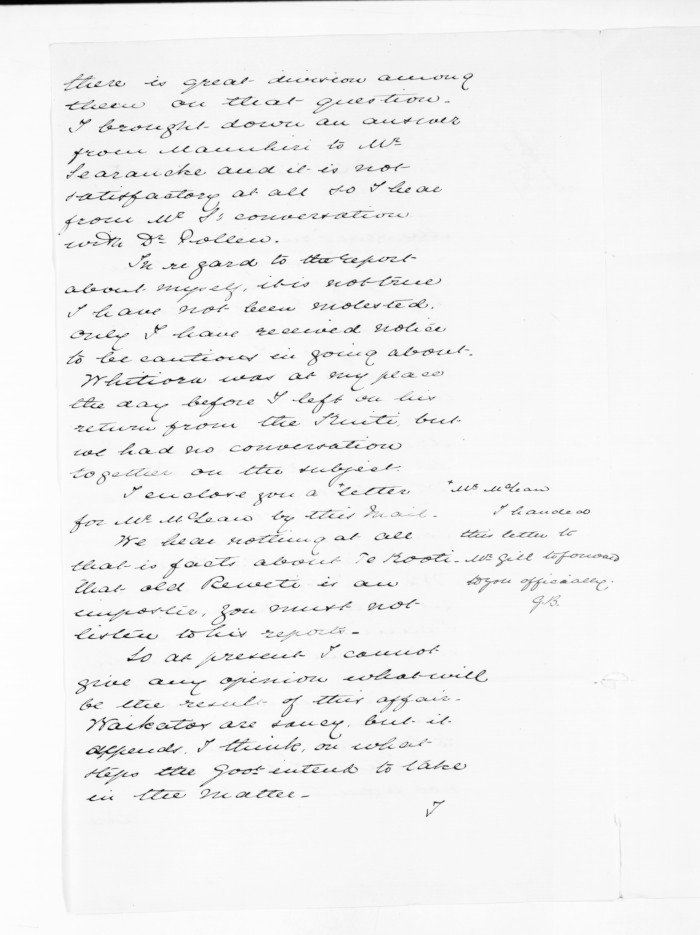 there is great division among
them on that question.
I brought down an answer
from Manuhiri to Mr
Searancke and it is not
satisfactory at all so I hear
from Mr S's conversation
with Dr Pollen.
In regard to the report
about myself, it is not true
I have not been molested.
only I have received notice
to be cautious in going about.
Whitiora was at my place
the day before I left on his
return from the Kuiti, but
we had no conversation
together on the subject.
I enclose you a *letter
for Mr McLean by this Mail.
We hear nothing at all
that is facts about Te Kooti.
That old Reweti is an
imposter, you must not
listen to his reports.
So at present I cannot
give any opinion what will
be the result of this affair.
Waikatos are saucy, but it
depends, I think, on what
steps the Govt intend to take
in the matter.
I
*Mr McLean
I handed
this letter to
Mr Gill to forward
to you officially.
GB.